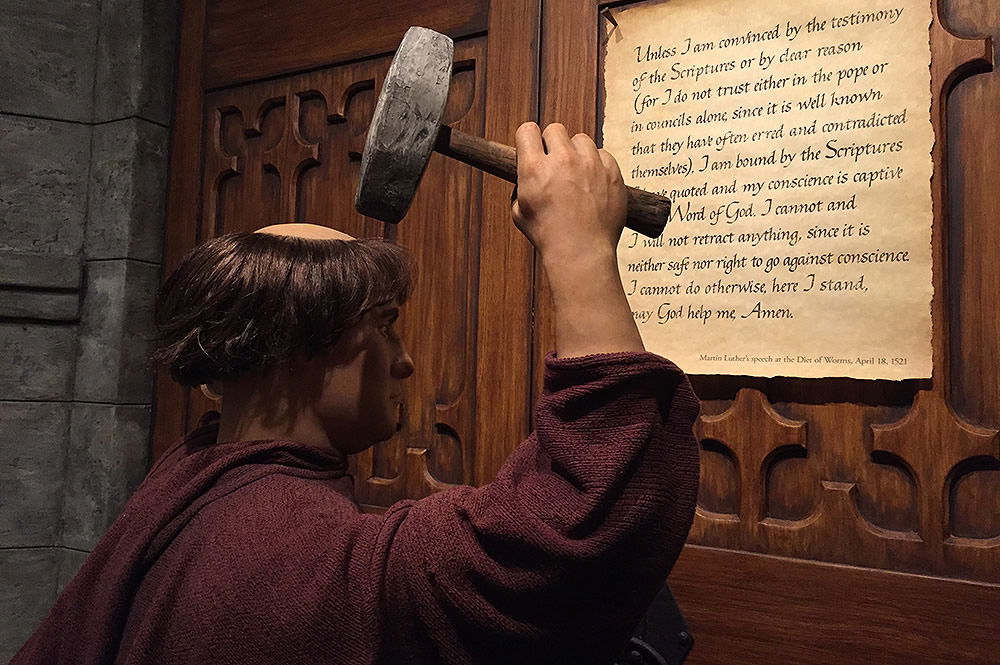 Unless I am convinced by the testimony
of the Scriptures or by clear reason
(for I do not trust either in the pope or
in councils alone, since it is well known
that they have often erred and contradicted
themselves), I am bound by the Scriptures
I have quoted and my conscience is captive
Word of God. I cannot and
I will not retract anything, since it is
neither safe nor right to go against conscience.
I cannot do otherwise, here I stand,
may God help me, Amen.
Martin Luther's speech at the Diet of Worms, April 18, 1521